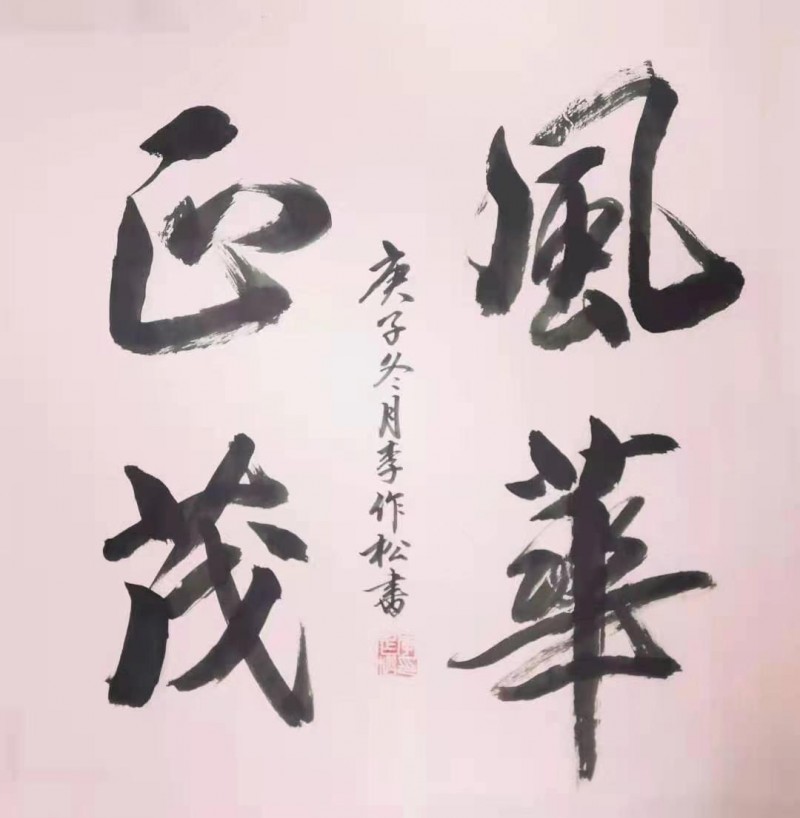 風華
正茂
庚子冬月李作松書